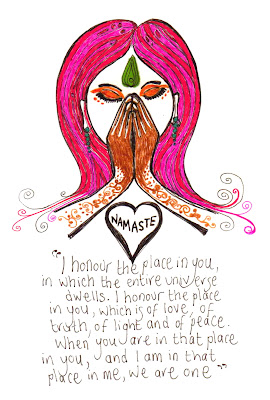 NAMASTE
"I honour the place in you,
in which the entire universe
dwells. I honour the place
in you, which is of love, of
truth, of light and of peace.
When you are in that place
in you, and I am in that
place in me, we are one"